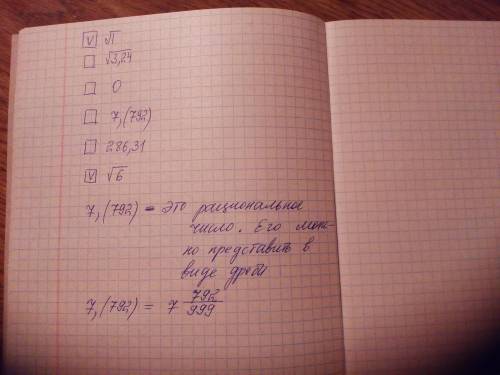 ☑ √π
☐ √3,24
☐ 0
☐ 7,(792)
☐ 286,31
☑ √6
7,(792) – это рациональное
число. Его мож-
но представить в
виде дроби
7,(792) = 7 792/999